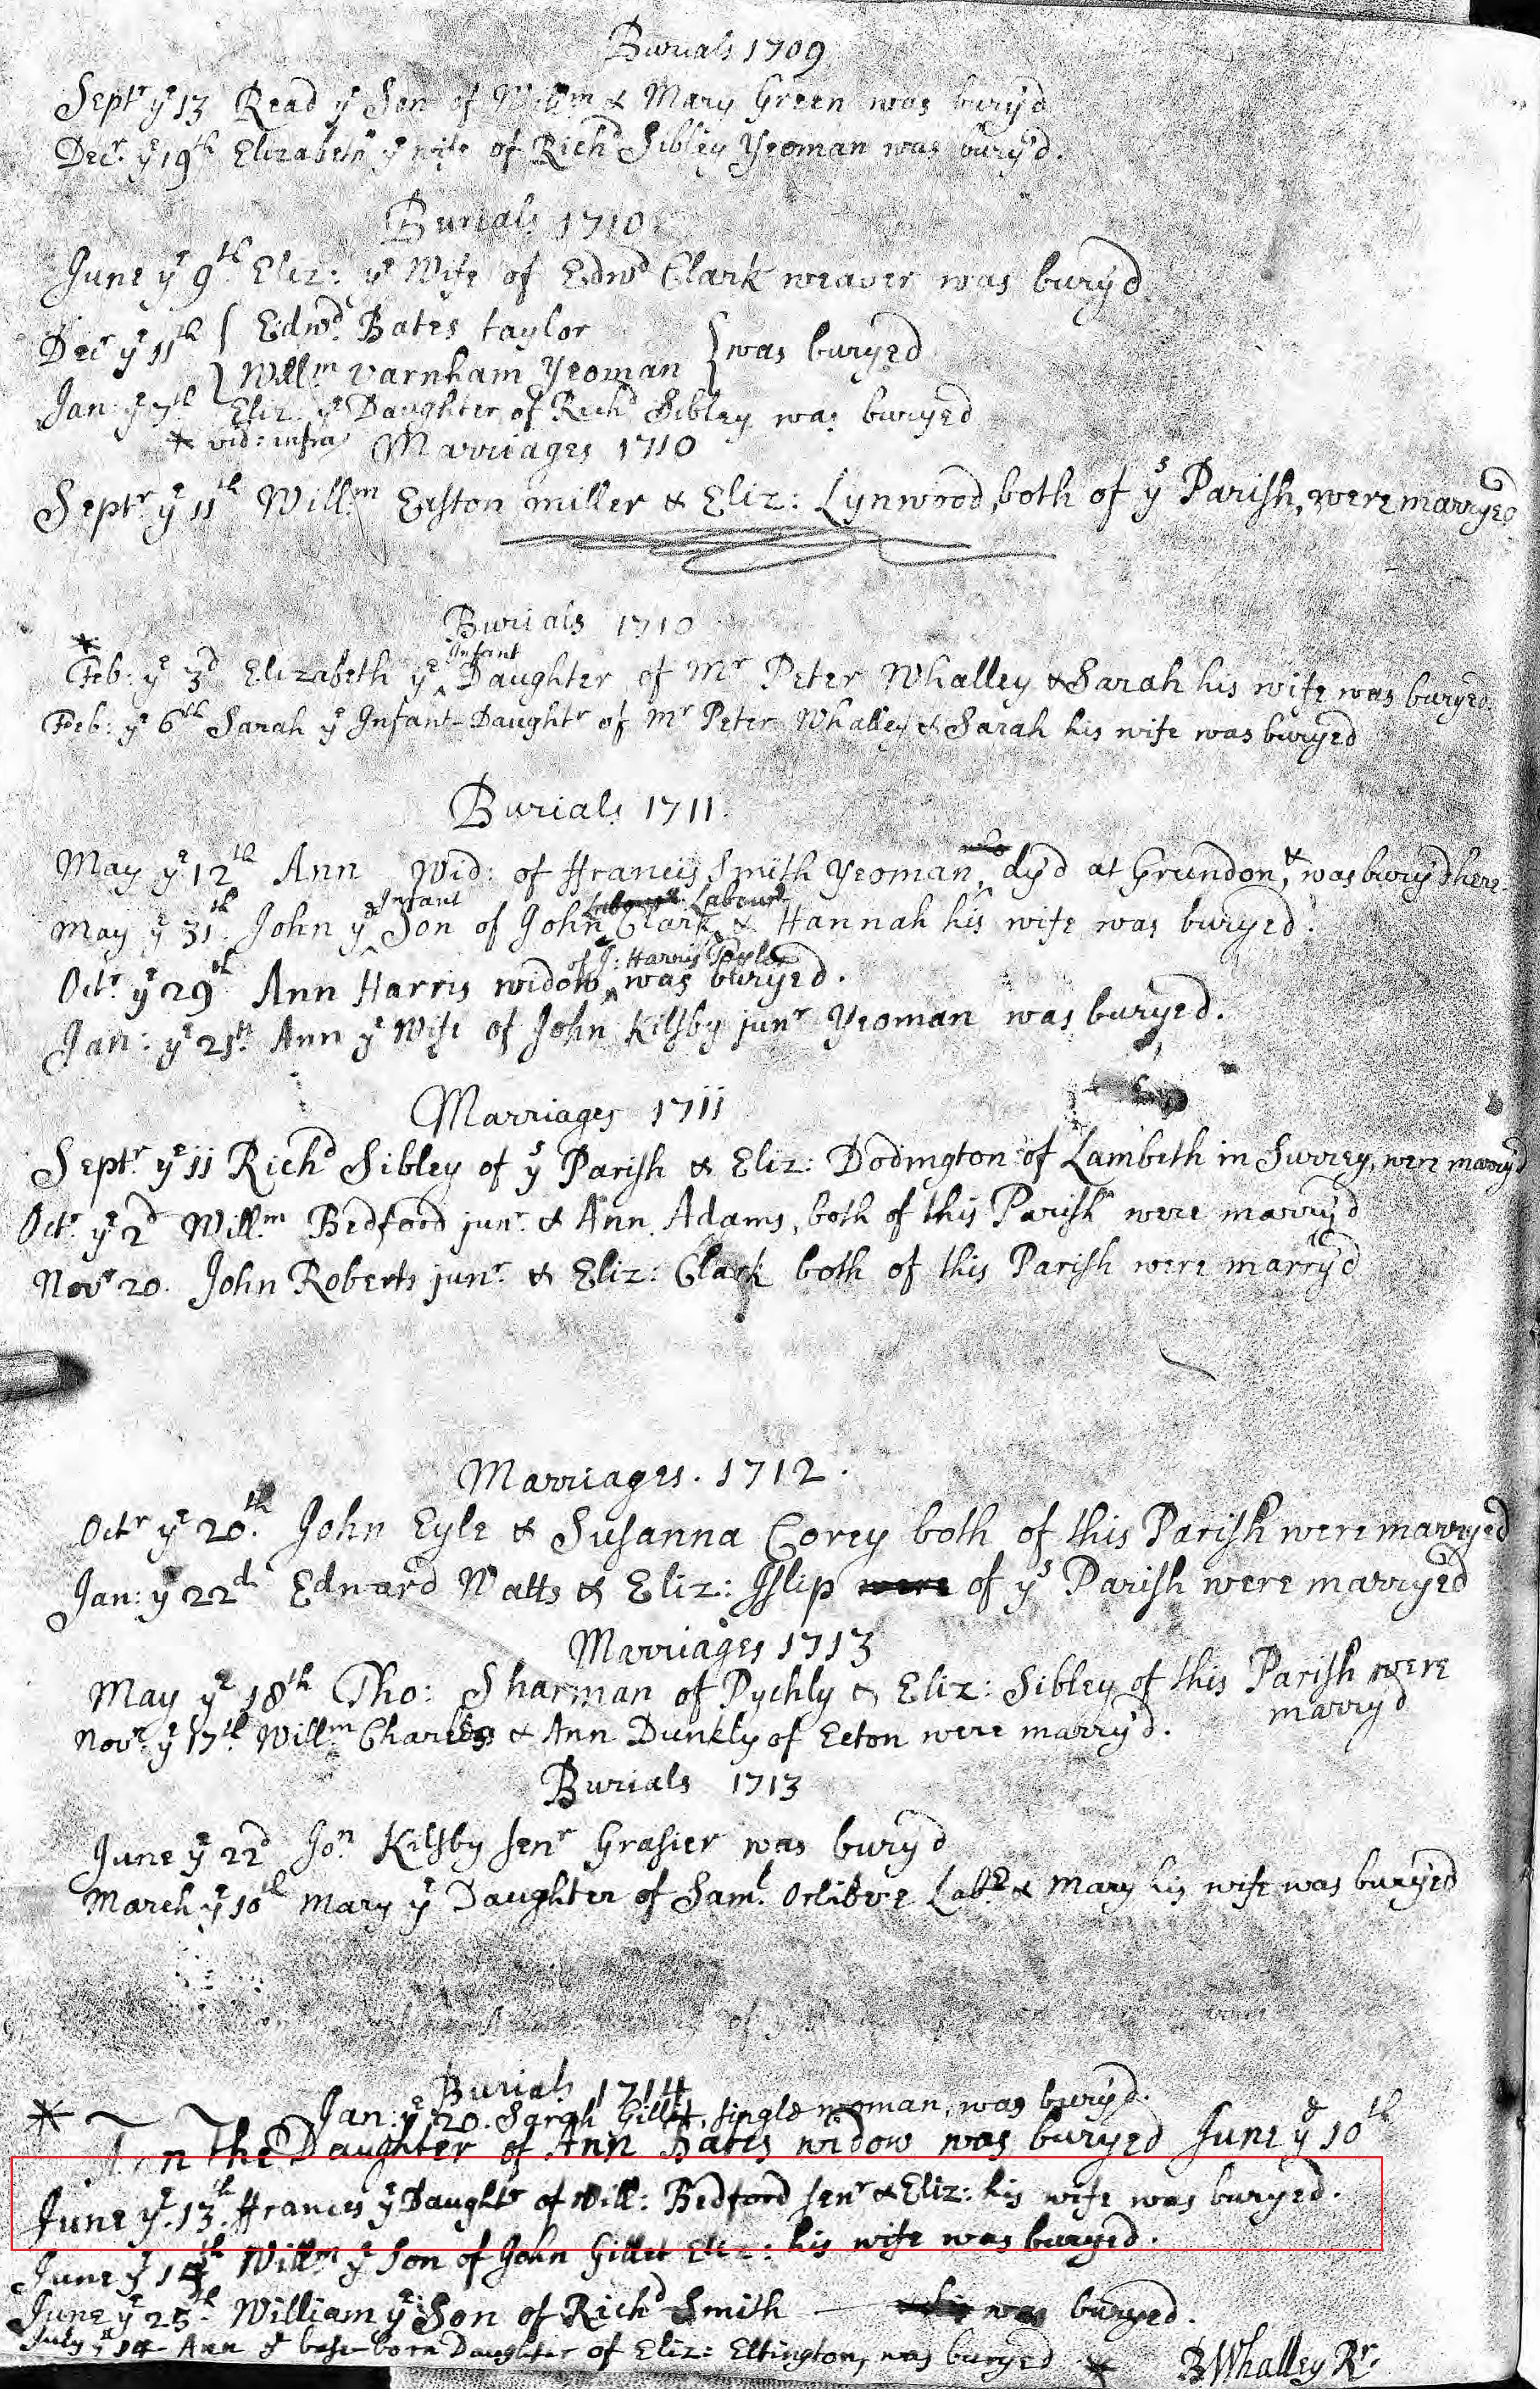 Burials 1709
Septr ye 13 Read ye Son of Willm & Mary Green was bury'd
Decr ye 19th Elizabeth ye wife of Richd Sibley Yeoman was bury'd.
Burials 1710
June ye 9th Eliz: ye Wife of Edwd Clark weaver was bury'd
Decr ye 11th { Edwd Bates taylor
} Willm Varnham Yeoman } was buryed
Jan: ye 7th Eliz: ye Daughter of Richd Sibley was buryed
* vid: infra
Marriages 1710
Septr ye 11th Willm Easton miller & Eliz: Lynwood, both of ys Parish, were marryed
Burials 1710
* Feb: ye 3d Elizabeth ye Infant Daughter of Mr Peter Whalley & Sarah his wife was buryed
Feb: ye 6th Sarah ye Infant Daughtr of Mr Peter Whalley & Sarah his wife was buryed
Burials 1711
May ye 12th Ann Wid: of Francis Smith Yeoman, dy'd at Grundon, & was bury'd here
May ye 31th John ye Infant Son of John Clark Labourr & Hannah his wife was buryed.
Octr ye 29th Ann Harris widow of J: Harris Taylor was buryed.
Jan: ye 21st Ann ye Wife of John Kilsby junr Yeoman was buryed.
Marriages 1711
Septr ye 11 Richd Sibley of ys Parish & Eliz: Dodington of Lambeth in Surrey, were marry'd
Octr ye 2d Willm Bedford junr & Ann Adams, both of this Parish were marry'd
Novr 20. John Roberts junr. & Eliz: Clark both of this Parish were marry'd
Marriages. 1712.
Octr ye 20th. John Eyle & Susanna Corey both of this Parish were marryed
Jan: ye 22d Edward Watts & Eliz: Islip were of ys Parish were marryed
Marriages 1713
May ye 18th Tho: Sharman of Pychly & Eliz: Sibley of this Parish were
marry'd
Novr ye 17th Willm Charles & Ann Dunkly of Ecton were marry'd.
Burials 1713
June ye 22d Jon Kilsby senr Grasier was bury'd
March ye 10th Mary ye Daughter of Saml Orlibre Labr & Mary his wife was buryed
Burials 1714
Jan: ye 20. Sarah Gillit, single woman, was bury'd.
* Ann The Daughter of Ann Bates widow was buryed June ye 10th
June ye 13th. Frances ye Daughtr of Will: Bedford senr & Eliz: his wife was buryed.
June ye 14th Willm ye Son of John Gillet Eliz: his wife was buryed.
June ye 25th William ye Son of Richd Smith was buryed.
July ye 14 Ann ye base-born Daughter of Eliz: Eltington, was buryed *
B Whalley Rr.